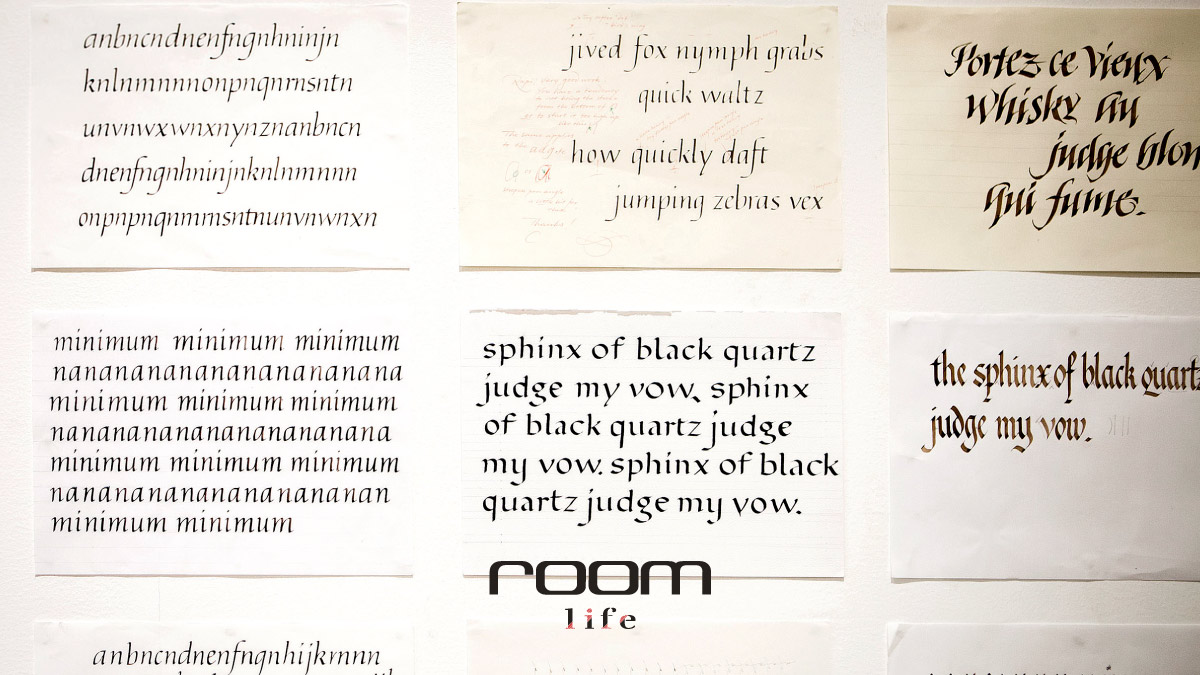 anbncndnenfngnhninjn
knlnmnnnonpnqnrnsntn
unvnwxwnxnynznanbncn
dnenfngnhninjnknlnmnnn
onpnpnqnmmsntnunvnwnxn
jived fox nymph grabs
quick waltz
how quickly daft
jumping zebras vex
Portez ce vieux
whisky au
judge blon
qui fume.
minimum minimum minimum
nanananananananananana
minimum minimum minimum
nanananananananananana
minimum minimum minimum
nanananananananananan
minimum minimum
sphinx of black quartz
judge my vow, sphinx
of black quartz judge
my vow. sphinx of black
quartz judge my vow.
the sphinx of black quartz
judge my vow.
room
life
anbncndnenfngnhijkmnn